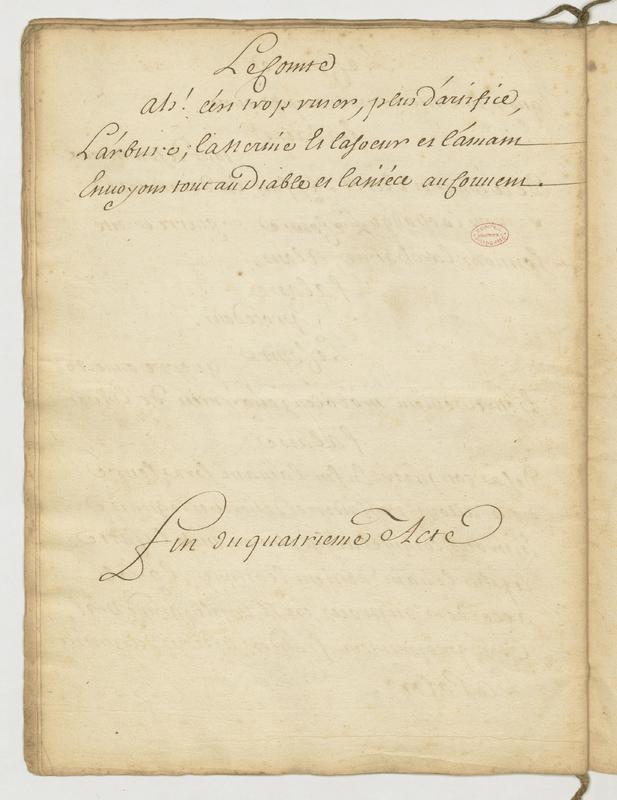 Le Comte
ah! c'en trop ruser, plus d'artifice,
L'arbitre, la Hernie Et la soeur et l'amant
Envoyons tout au Diable et la niéce au Couvent.
Fin du quatrieme Acte